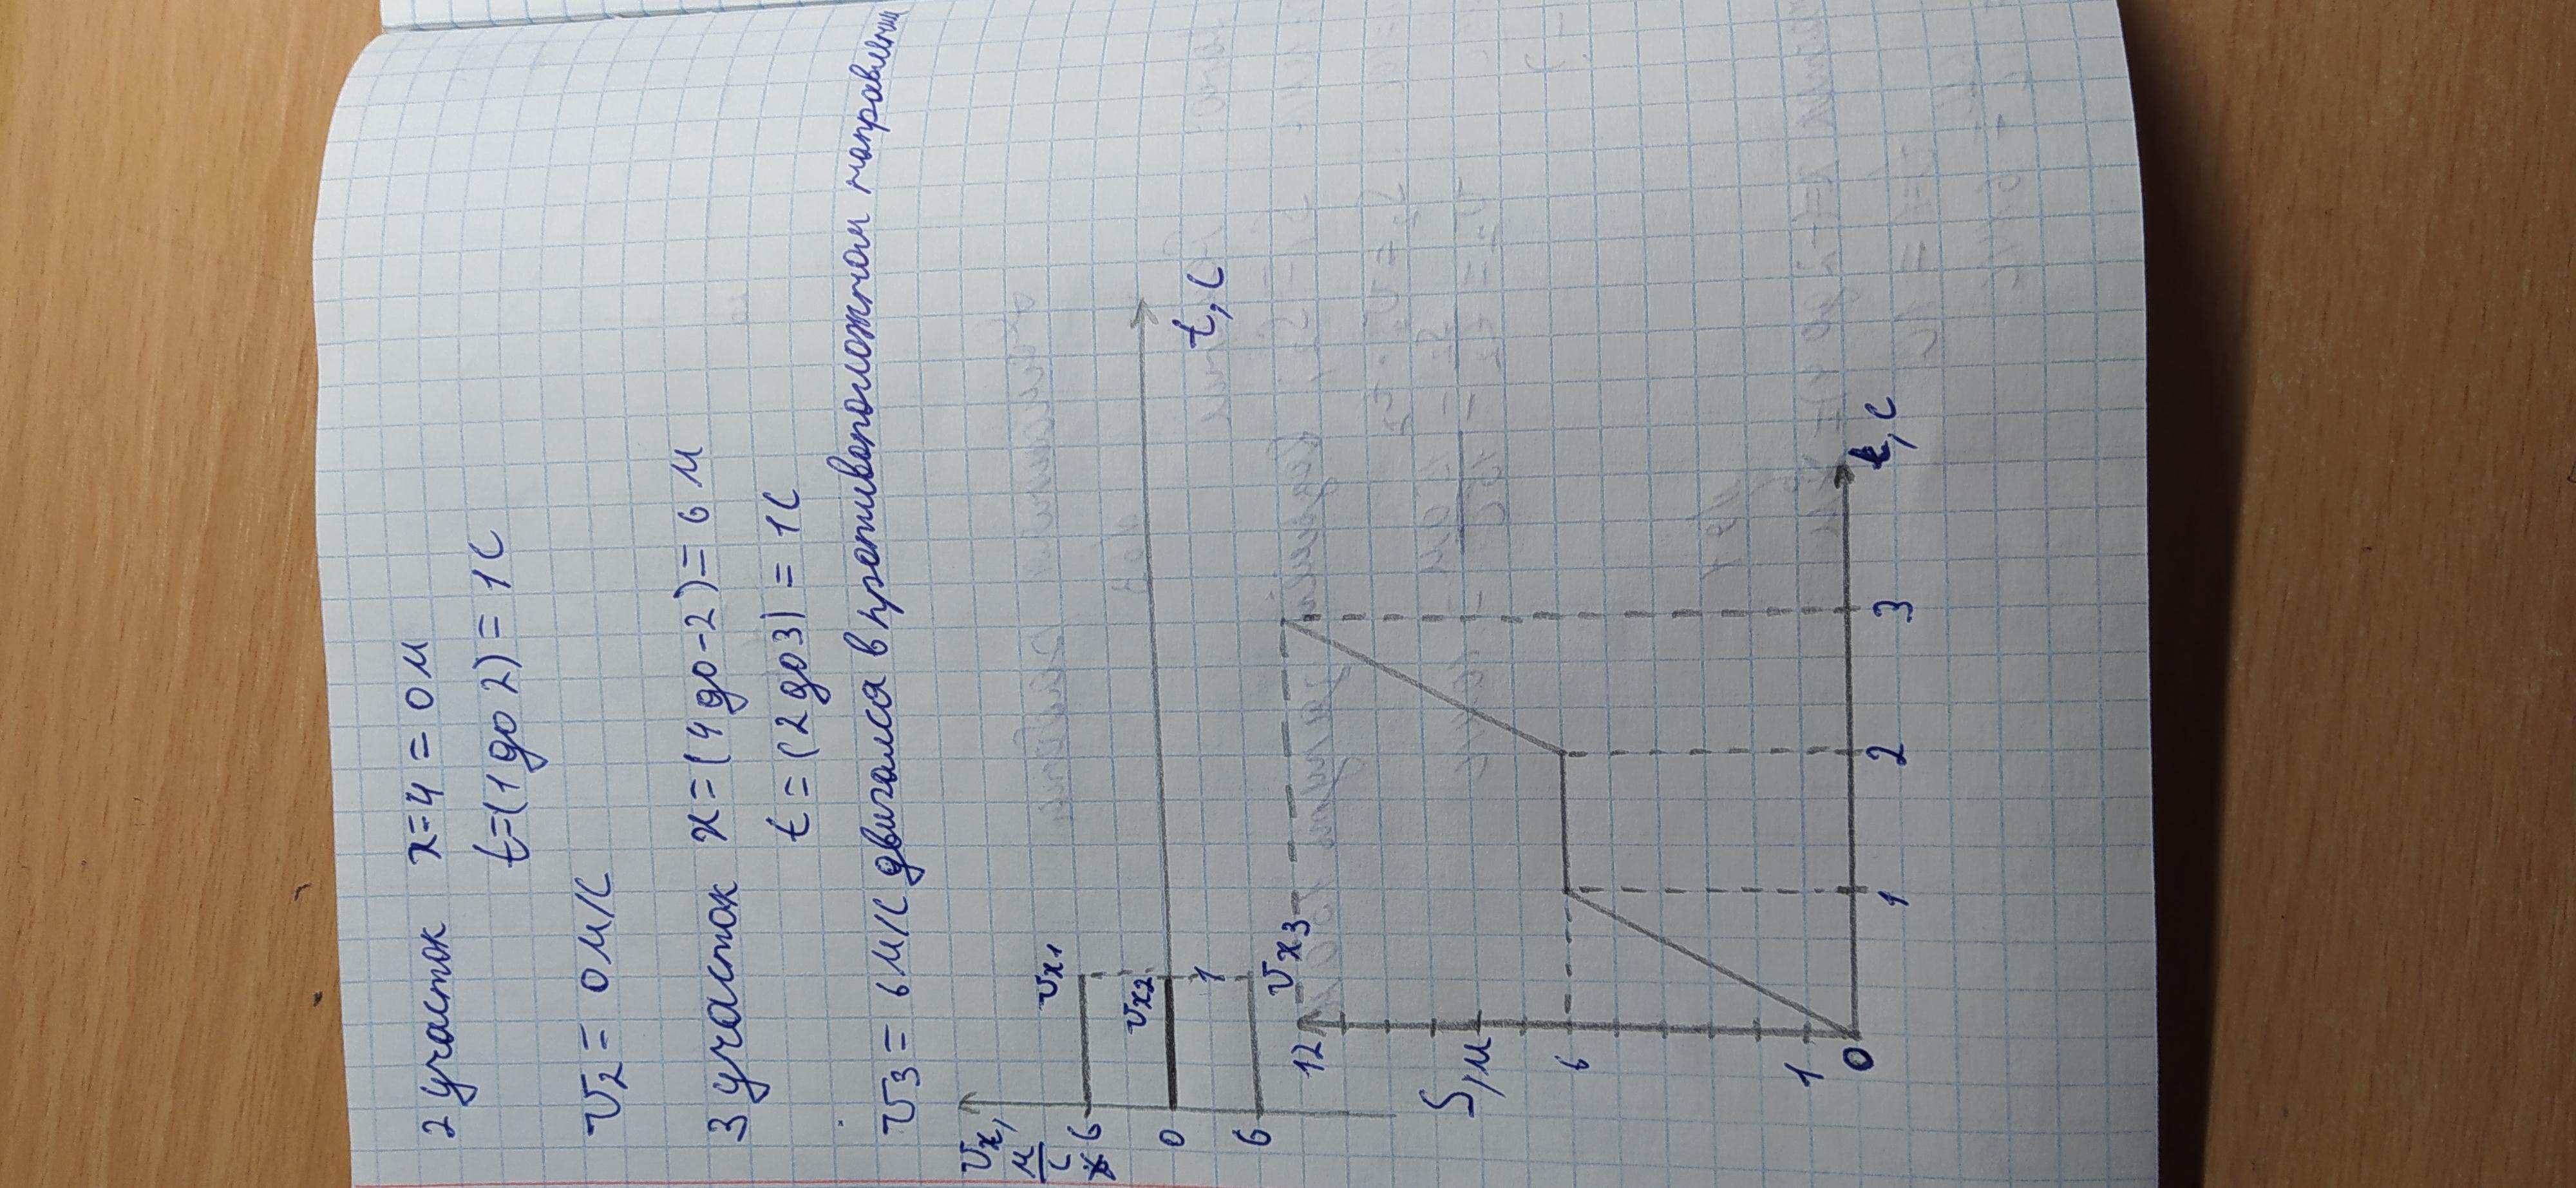 2 участок x=4=0м
t=(1 до 2)=1с
v₂=0м/с
3 участок x=(4 до -2)=6м
t=(2 до 3)=1с
v₃=6м/с двигался в противоположном направлении
vₓ, м/с
6
vₓ₁
vₓ₂
0
1
t, с
6
vₓ₃
12
S, м
6
1
0
1
2
3
t, с